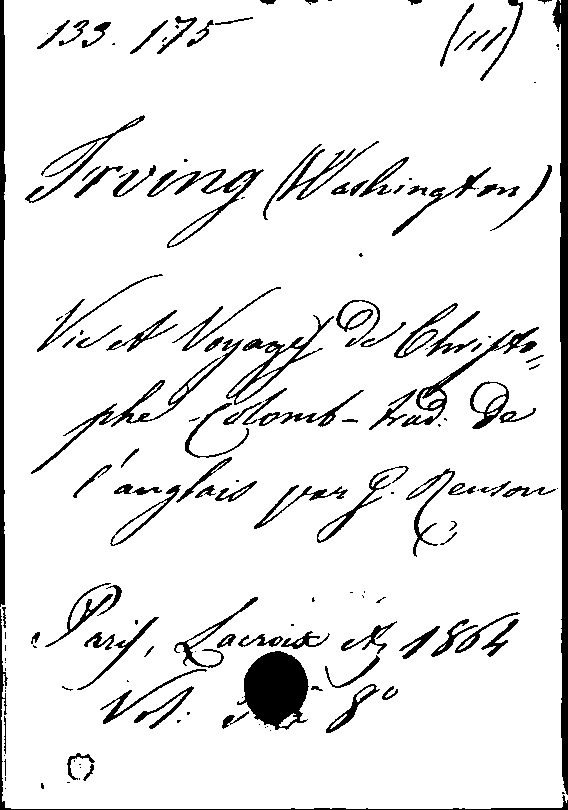 133. 175 (III)
Irving (Washington)
Vie et Voyages de Christo=
phe Colomb - trad. de
l'anglais par G. Renson
Paris, Lacroix etc 1864
Vol. 8º